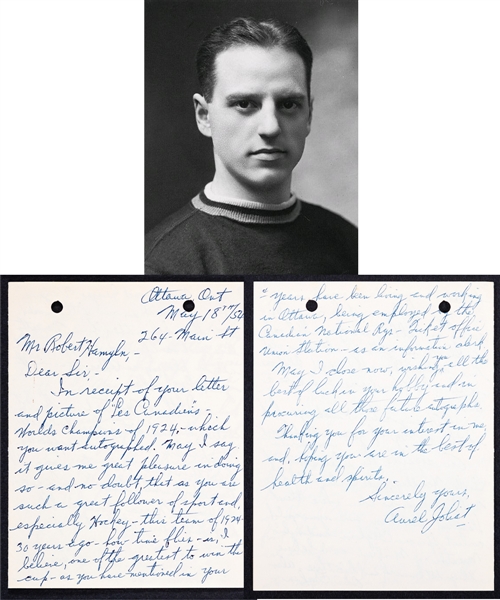 Ottawa, Ont
May 18th/54
264 - Main St
Mr Robert
Dear Sir -
In receipt of your letter
and picture of "Les Canadiens" -
Worlds Champions of 1924, - which
you want autographed. May I say
it gives me great pleasure in doing
so - and no doubt, that as you are
such a great follower of sport and,
especially Hockey - this team of 1924 -
30 years ago - how time flies - is, I
believe, one of the greatest to win the
cup - as you have mentioned in your
years have been living and working
in Ottawa, being employed by the
Canadian National Rys - Ticket office
Union Station - as an information clerk
May I close now, wishing you all the
best of luck in your hobby and in
procuring all those future autographs.
Thanking you for your interest in me
and, hoping you are in the best of
health and spirits,
Sincerely yours,
Aurel Joliat